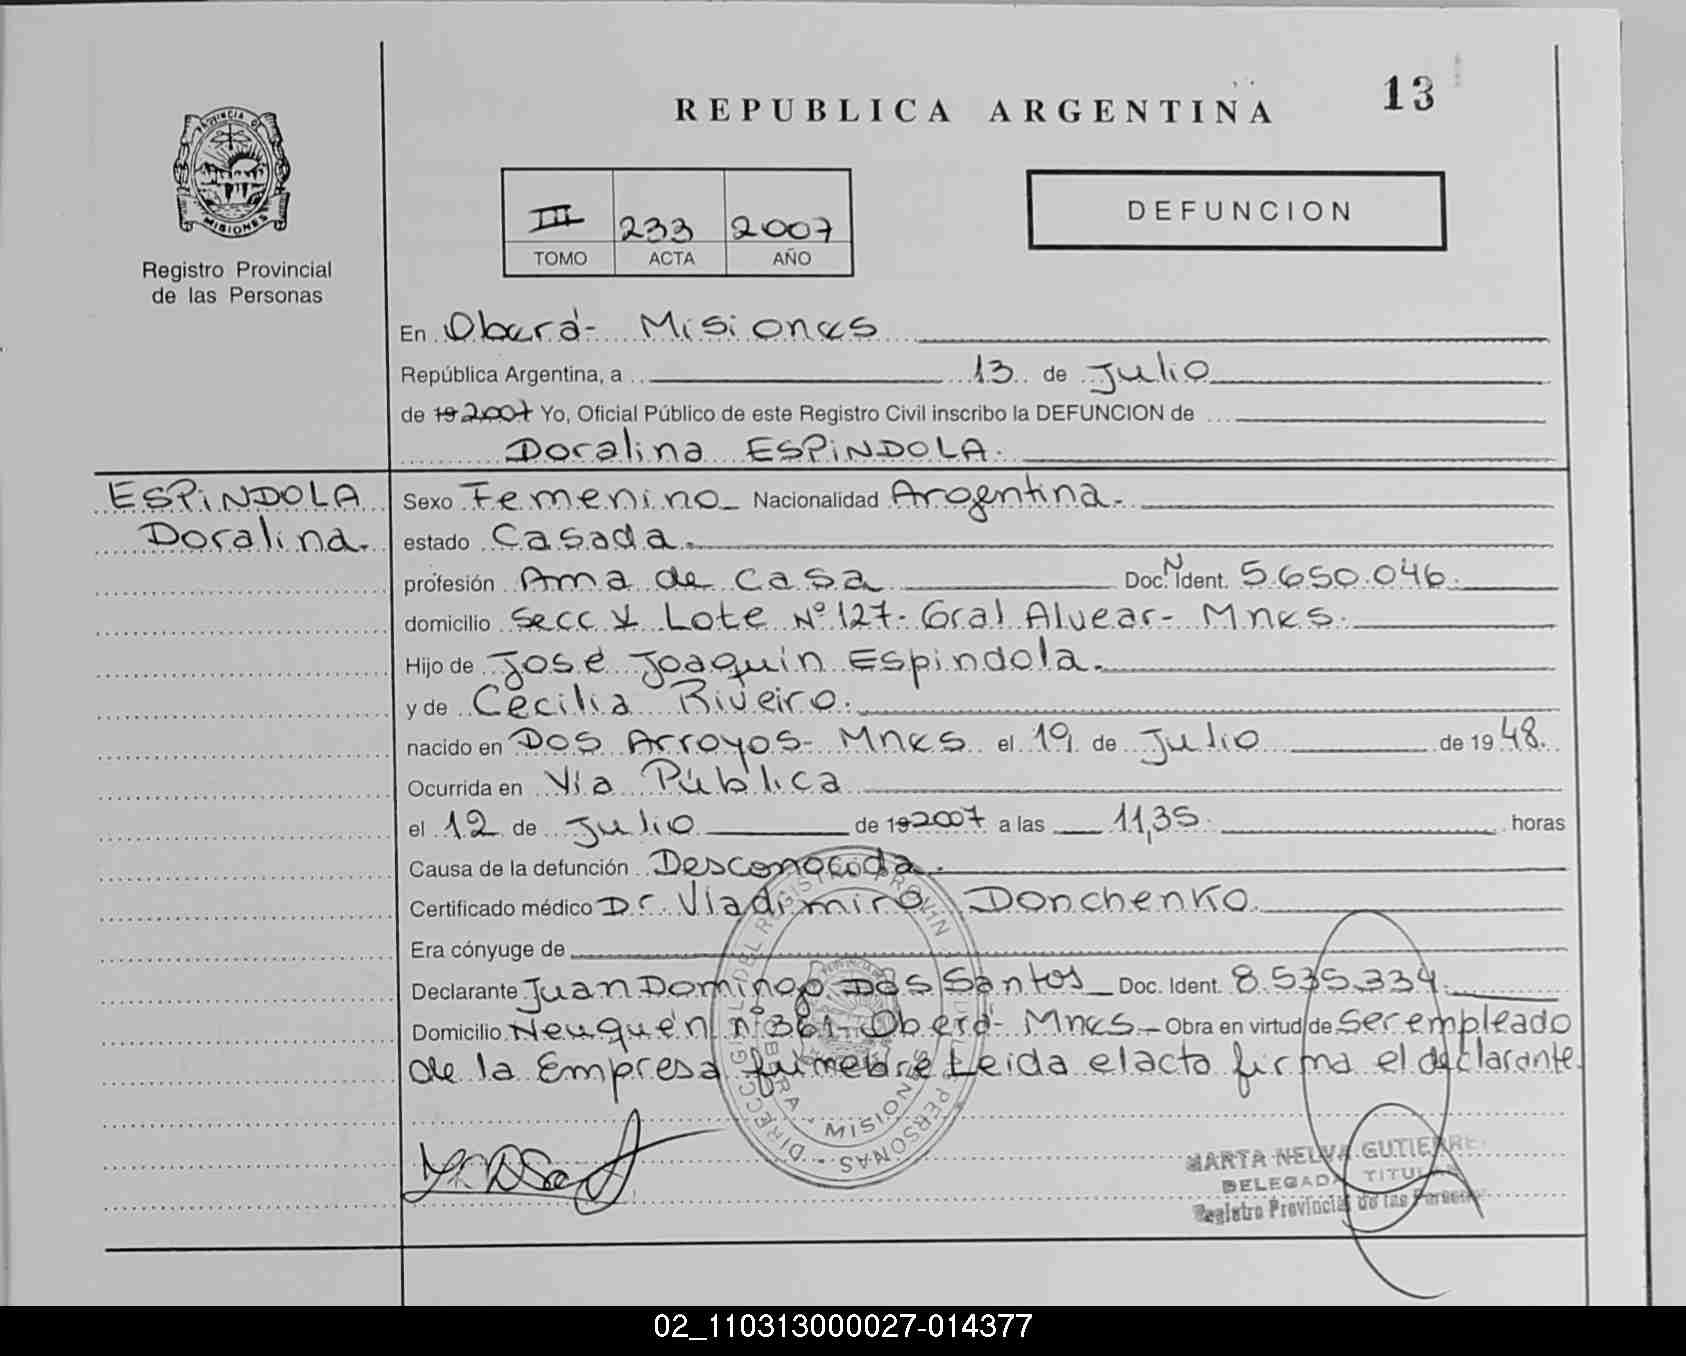 REPUBLICA ARGENTINA
13
PROVINCIA DE
MISIONES
Registro Provincial
de las Personas
III 233 2007
TOMO ACTA AÑO
DEFUNCION
En Oberá- Misiones
República Argentina, a 13 de Julio
de 19 2007 Yo, Oficial Público de este Registro Civil inscribo la DEFUNCION de
Doralina ESPiNDOLA.
ESPiNDOLA
Doralina.
Sexo Femenino Nacionalidad Argentina.
estado Casada.
profesión Ama de casa Doc. N Ident. 5.650.046.
domicilio Secc V Lote Nº 127- Gral Alvear- Mnes.
Hijo de José Joaquín Espindola.
y de Cecilia Riveiro.
nacido en Dos Arroyos- Mnes el 19 de Julio de 1948.
Ocurrida en Vía Pública
el 12 de Julio de 19 2007 a las 11,35 horas
Causa de la defunción Desconocida.
Certificado médico Dr. Vladimiro Donchenko
Era cónyuge de
Declarante Juan Domingo Dos Santos Doc. Ident. 8.535.334.
Domicilio Neuquén nº 361- Oberá- Mnes.- Obra en virtud de Ser empleado
de la Empresa fúnebre Leida el acto firma el declarante.
MISIONES
MARTA NELVA GUTIERRE
DELEGADA TITULAR
Registro Provincial de las Personas
02_110313000027-014377